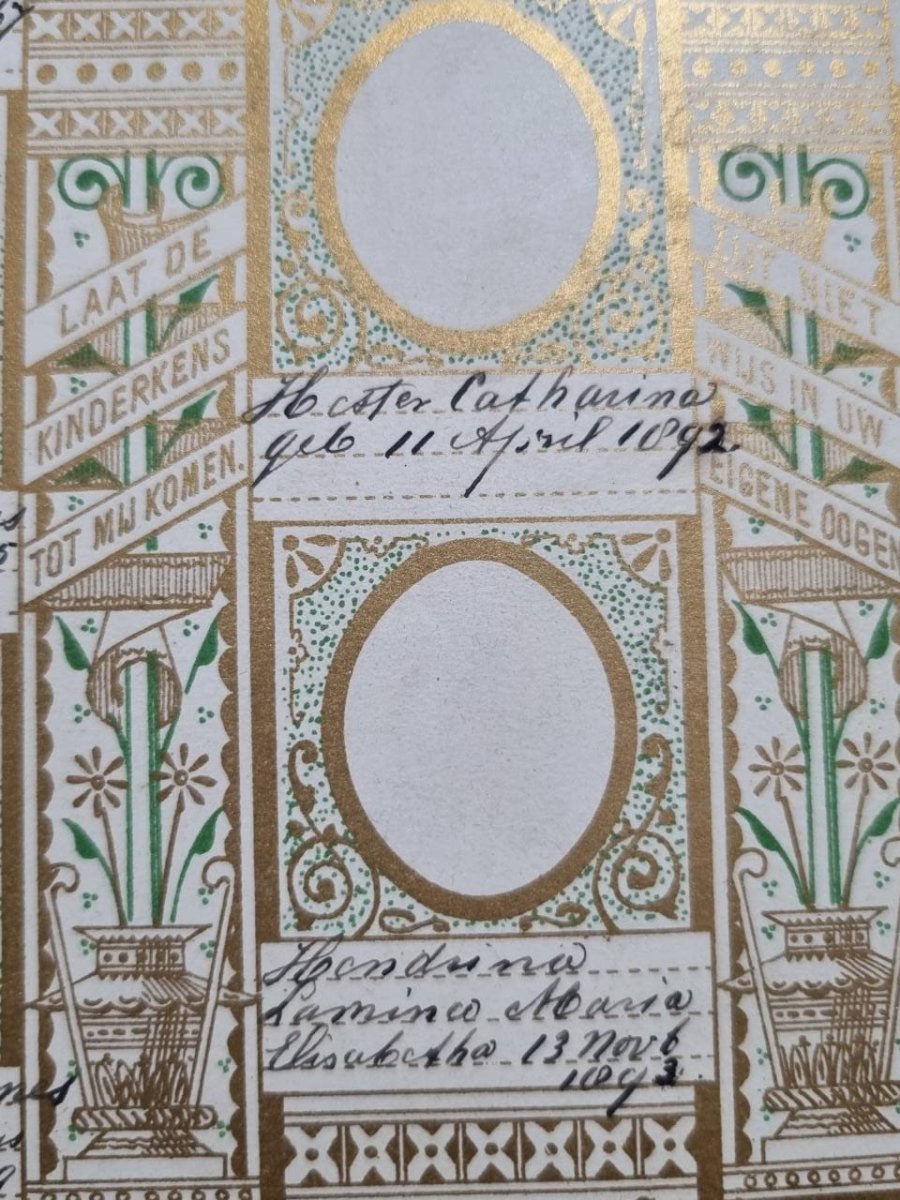 LAAT DE
KINDERKENS
TOT MIJ KOMEN.
Hester Catharina
geb 11 April 1892
NIET
WIJS IN UW
EIGENE OOGEN
Hendrina
Lamina Maria
Elisabetha 13 Novb
1893